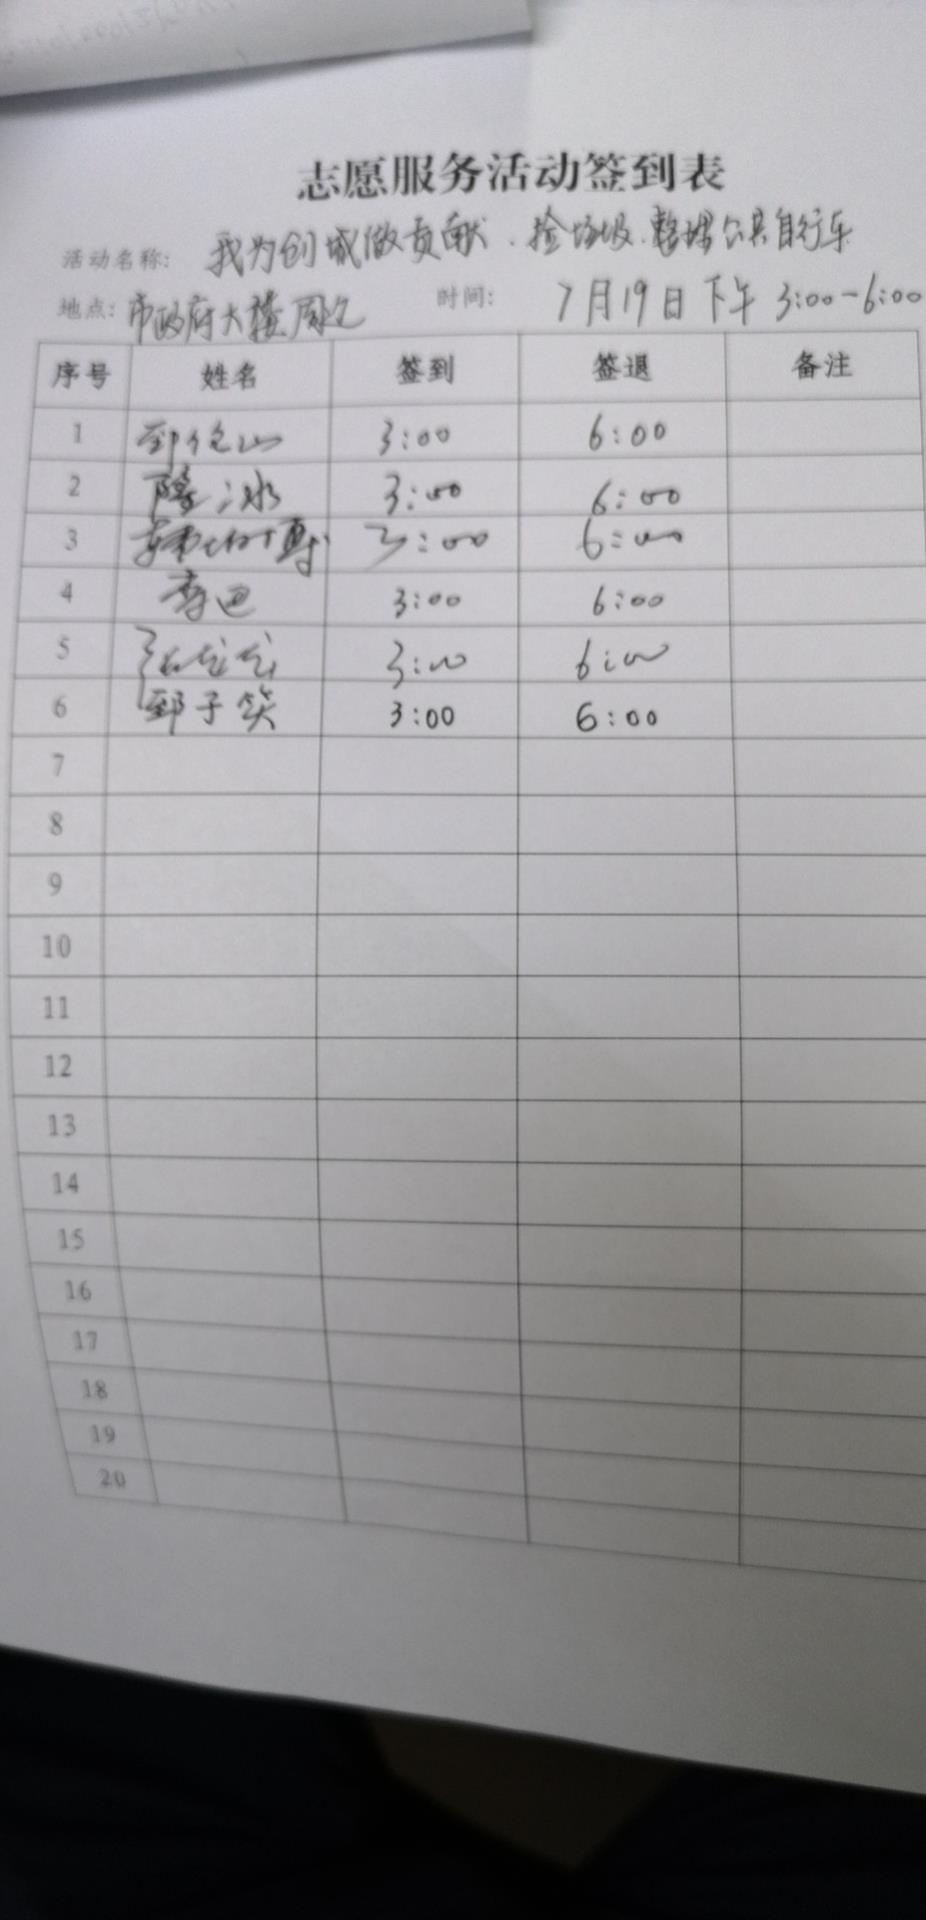 志愿服务活动签到表
活动名称: 我为创城做贡献、捡垃圾、整理公共自行车
地点: 市政府大楼周边 时间: 7月19日下午 3:00-6:00
序号 姓名 签到 签退 备注
1 3:00 6:00
2 冰 3:00 6:00
3 3:00 6:00
4 李迪 3:00 6:00
5 3:00 6:00
6 郅子笑 3:00 6:00
7
8
9
10
11
12
13
14
15
16
17
18
19
20